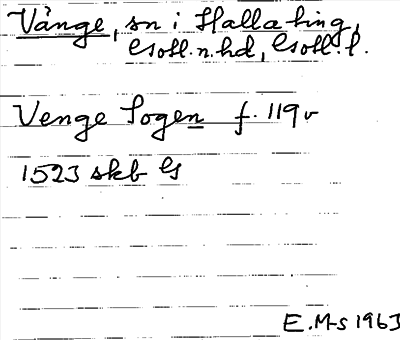 Vänge, sn i Halla ting,
Gotl. n. hd, Gotl. l.
Venge Sogen f. 119 v
1523 skb G
E. M-s 1963